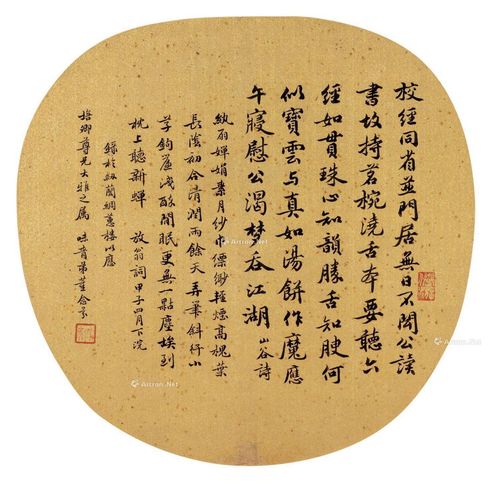 校經同省並門居無日不聞公讀
書故持茗椀澆舌本要聽六
經如貫珠心知韻勝舌知腴何
似寶雲与真如湯餅作魔應
午寢慰公渴夢吞江湖 山谷詩
紈扇嬋娟素月紗巾縹緲輕煙高槐葉
長陰初合清潤雨餘天弄筆斜行小
草鉤簾淺醉閒眠更無一點塵埃到
枕上聽新蟬 放翁詞 甲子四月下浣
錄於紉蘭綢蕙樓以應
培卿尊兄大雅之属 味青弟董念棻
Artron.Net